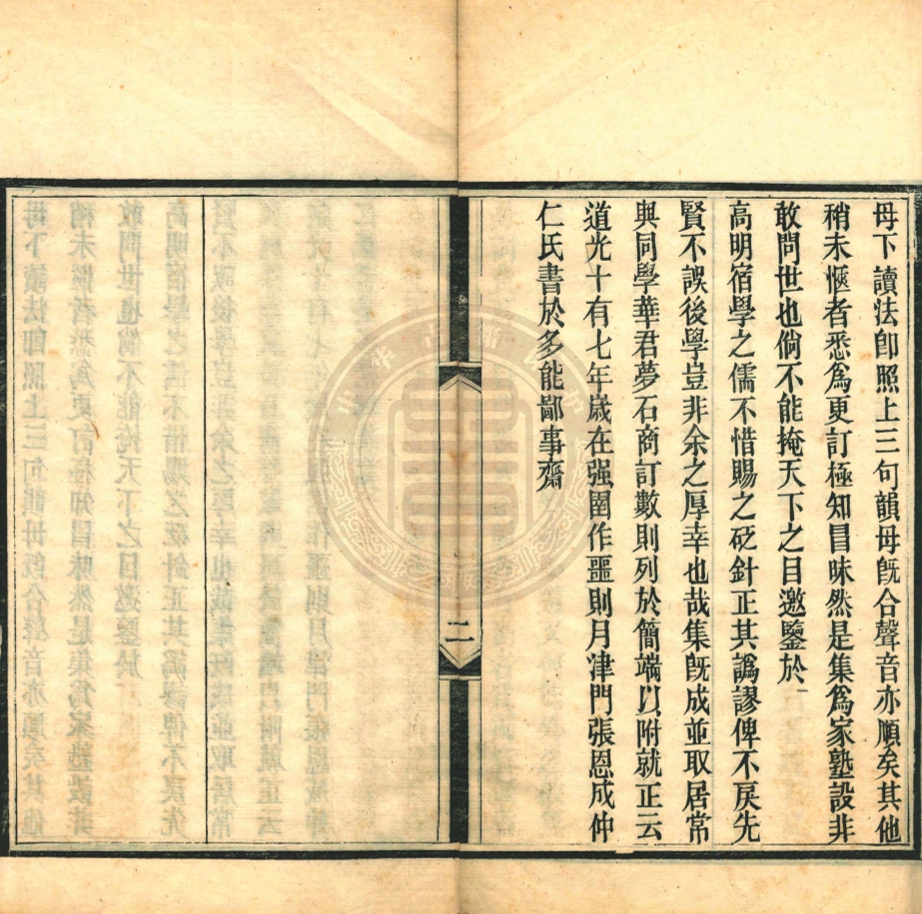 母下讀法卽照上三句韻母旣合聲音亦順矣其他
稍未愜者悉爲更訂極知冒昧然是集爲家塾設非
敢問世也倘不能掩天下之目邀鑒於
高明宿學之儒不惜賜之砭針正其譌謬俾不戾先
賢不誤後學豈非余之厚幸也哉集旣成並取居常
與同學華君夢石商訂數則列於簡端以附就正云
道光十有七年歲在强圉作噩則月津門張恩成仲
仁氏書於多能鄙事齋
二